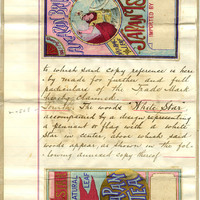 JAPAN TEA
IMPORTED BY
to which said copy reference is here
by made for further and full
particulars of the Trade Mark
hereby claimed.
Fourth: The words "White Star"
accompanied by a design representing
a pennant or flag with a white
Star in center, above which said
words appear, as shown in the fol-
lowing annexed copy thereof
NATURAL LEAF
JAPAN